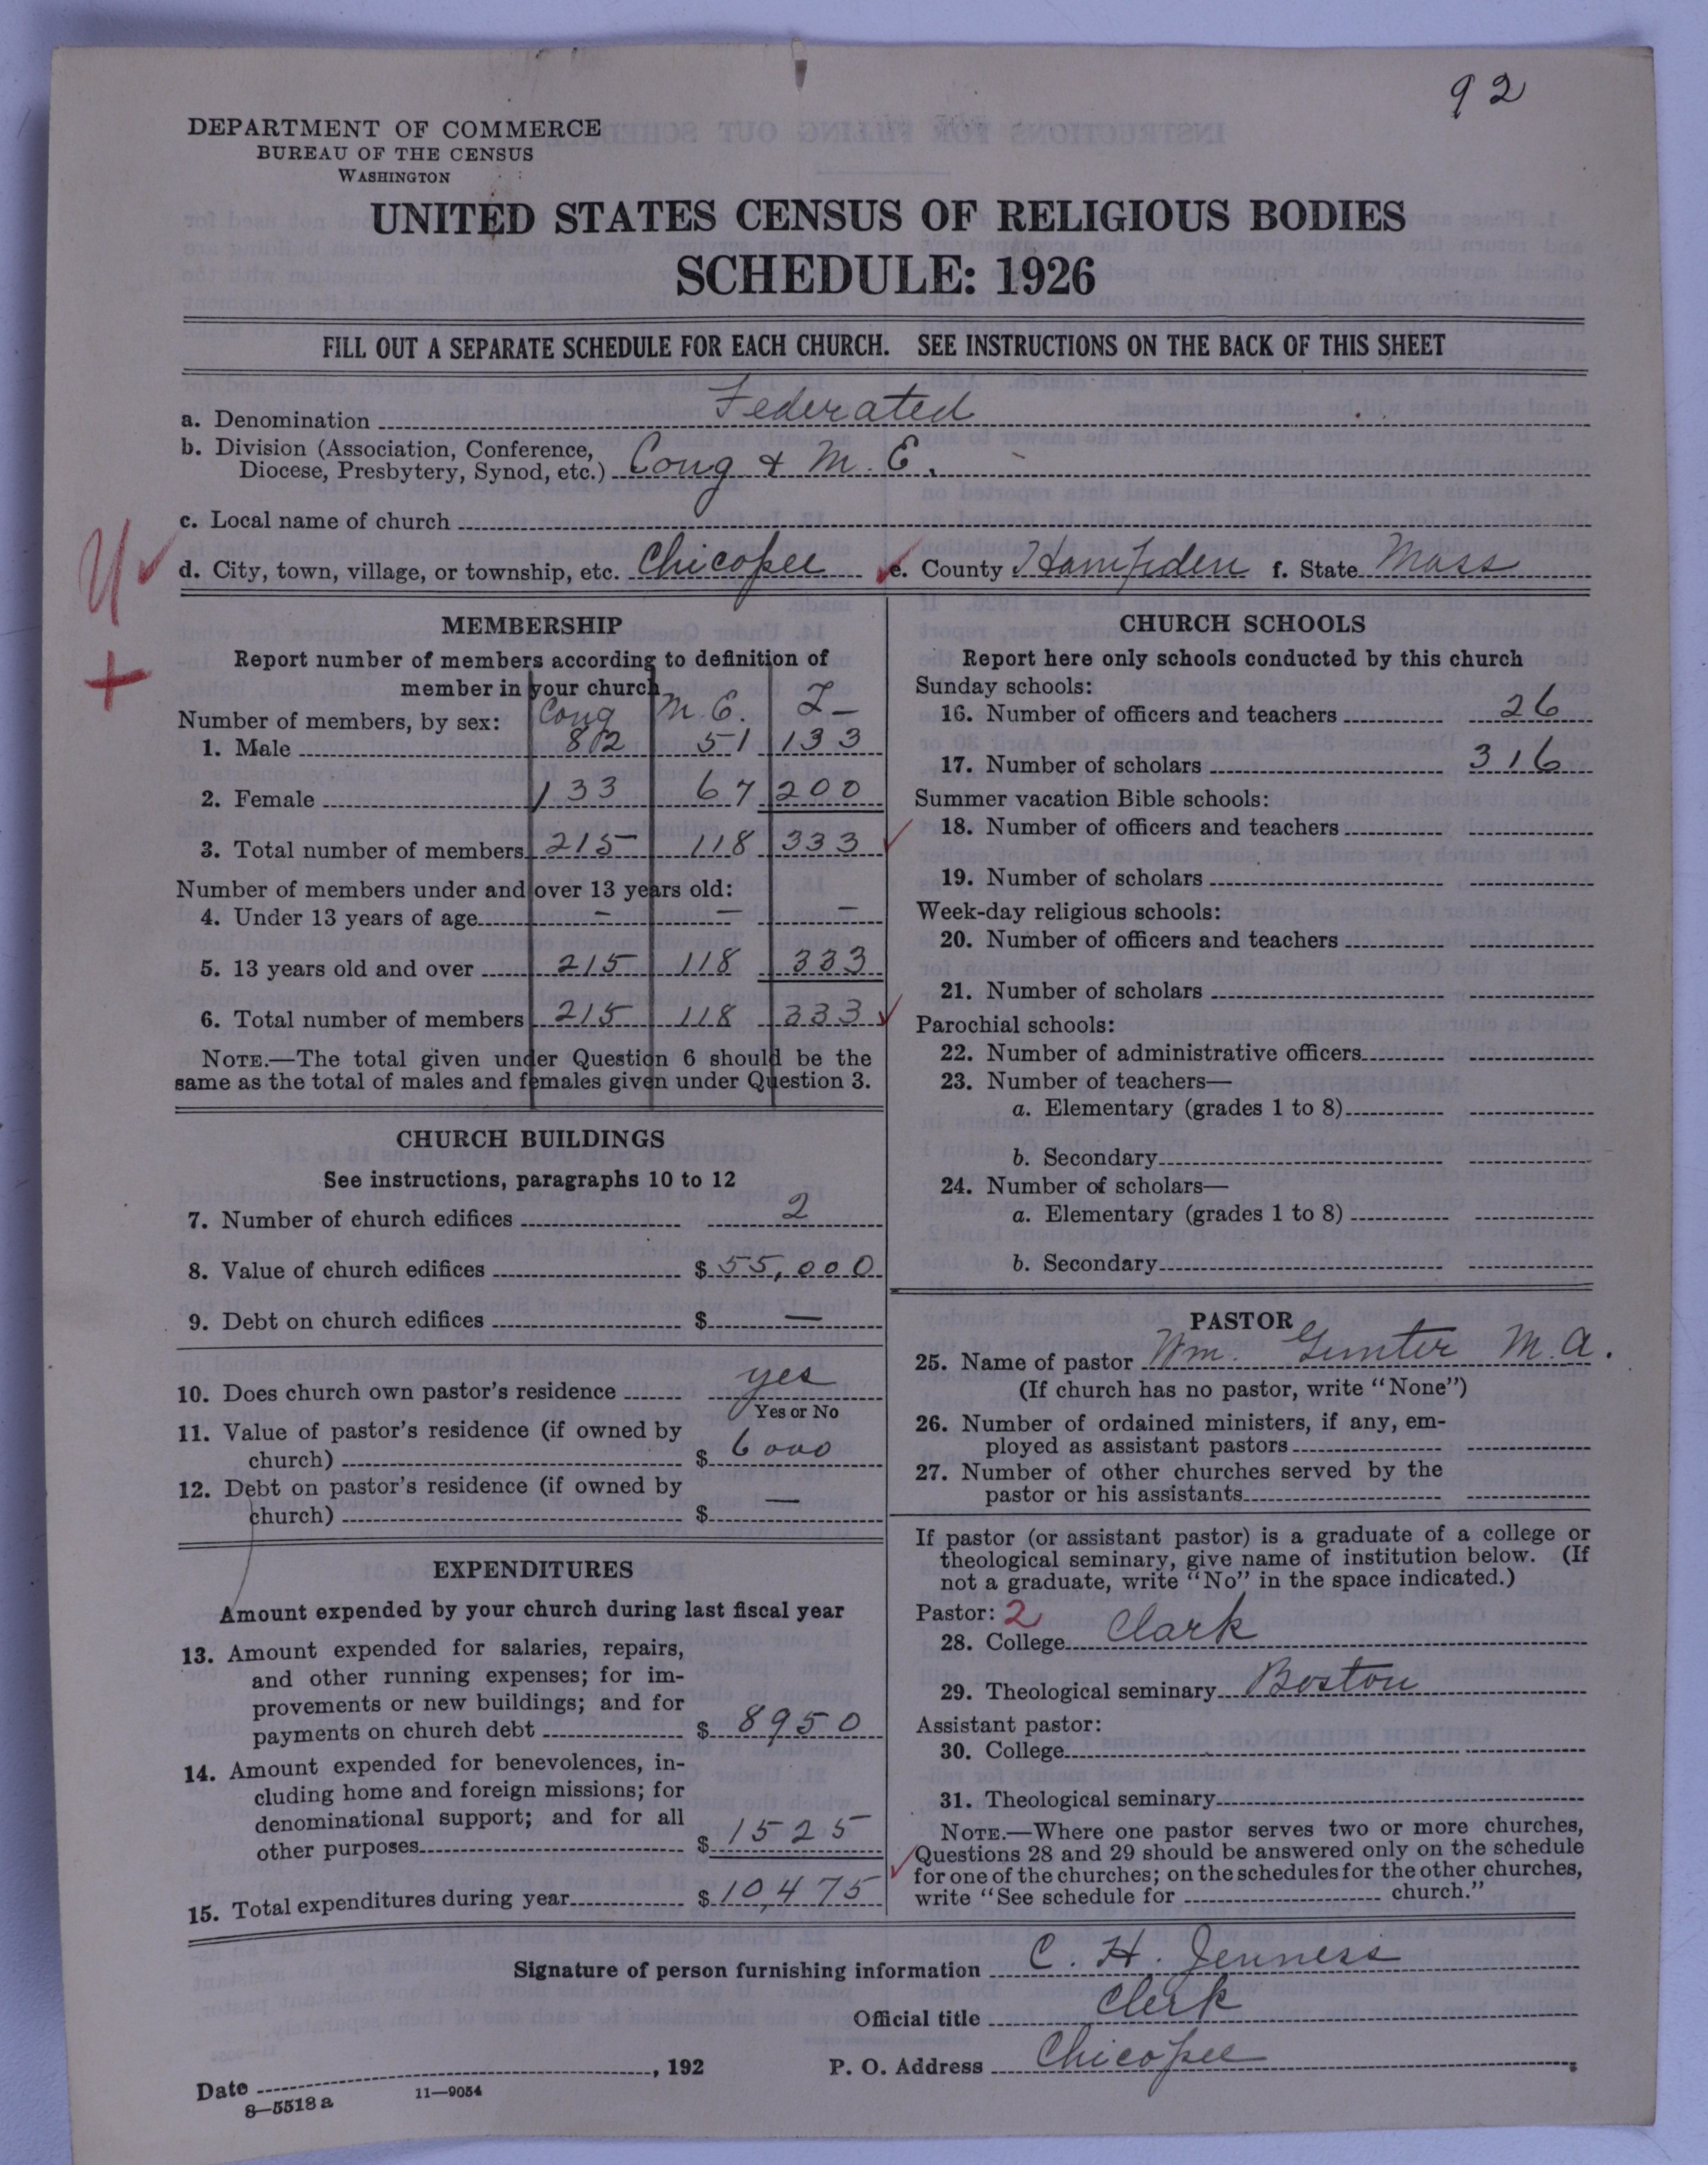 92
DEPARTMENT OF COMMERCE
BUREAU OF THE CENSUS
WASHINGTON
UNITED STATES CENSUS OF RELIGIOUS BODIES
SCHEDULE: 1926
FILL OUT A SEPARATE SCHEDULE FOR EACH CHURCH. SEE INSTRUCTIONS ON THE BACK OF THIS SHEET
a. Denomination Federated
b. Division (Association, Conference,
Diocese, Presbytery, Synod, etc.) Cong & M. E.
c. Local name of church
d. City, town, village, or township, etc. Chicopee e. County Hampden f. State Mass
MEMBERSHIP
Report number of members according to definition of
member in your church
Number of members, by sex: Cong M. E.
1. Male 82 51 133
2. Female 133 67 200
3. Total number of members 215 118 333
Number of members under and over 13 years old:
4. Under 13 years of age – – –
5. 13 years old and over 215 118 333
6. Total number of members 215 118 333
NOTE.—The total given under Question 6 should be the
same as the total of males and females given under Question 3.
CHURCH BUILDINGS
See instructions, paragraphs 10 to 12
7. Number of church edifices 2
8. Value of church edifices $ 55,000
9. Debt on church edifices $ —
10. Does church own pastor's residence yes
Yes or No
11. Value of pastor's residence (if owned by
church) $ 6000
12. Debt on pastor's residence (if owned by
church) $ —
EXPENDITURES
Amount expended by your church during last fiscal year
13. Amount expended for salaries, repairs,
and other running expenses; for im-
provements or new buildings; and for
payments on church debt $ 8950
14. Amount expended for benevolences, in-
cluding home and foreign missions; for
denominational support; and for all
other purposes $ 1525
15. Total expenditures during year $ 10,475
CHURCH SCHOOLS
Report here only schools conducted by this church
Sunday schools:
16. Number of officers and teachers 26
17. Number of scholars 316
Summer vacation Bible schools:
18. Number of officers and teachers
19. Number of scholars
Week-day religious schools:
20. Number of officers and teachers
21. Number of scholars
Parochial schools:
22. Number of administrative officers
23. Number of teachers—
a. Elementary (grades 1 to 8)
b. Secondary
24. Number of scholars—
a. Elementary (grades 1 to 8)
b. Secondary
PASTOR
25. Name of pastor Wm. Gunter M. A.
(If church has no pastor, write "None")
26. Number of ordained ministers, if any, em-
ployed as assistant pastors
27. Number of other churches served by the
pastor or his assistants
If pastor (or assistant pastor) is a graduate of a college or
theological seminary, give name of institution below. (If
not a graduate, write "No" in the space indicated.)
Pastor: 2
28. College Clark
29. Theological seminary Boston
Assistant pastor:
30. College
31. Theological seminary
NOTE.—Where one pastor serves two or more churches,
Questions 28 and 29 should be answered only on the schedule
for one of the churches; on the schedules for the other churches,
write "See schedule for church."
Signature of person furnishing information C. H. Jenness
Official title Clerk
Date , 192 P. O. Address Chicopee
8—5518a 11—9054